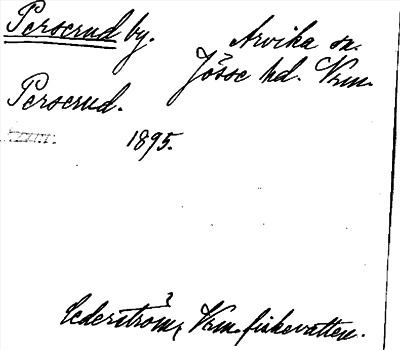 Perserud by. Arvika sn.
Jösse hd. Vrm.
Perserud.
1895.
Cederström, Vrm. fiskevatten.